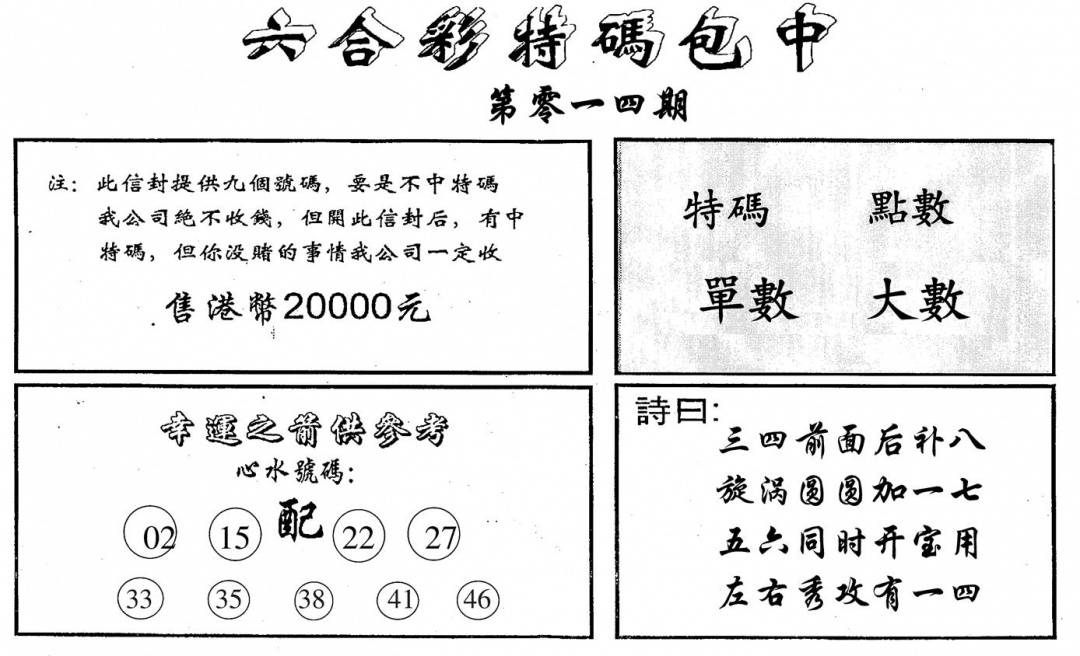 六合彩特碼包中
第零一四期
注：此信封提供九個號碼，要是不中特碼
我公司絕不收錢，但開此信封后，有中
特碼，但你没賭的事情我公司一定收
售港幣20000元
特碼 點數
單數 大數
幸運之箭供參考
心水號碼：
02 15 配 22 27
33 35 38 41 46
詩曰:
三四前面后补八
旋涡圆圆加一七
五六同时开宝用
左右秀攻有一四